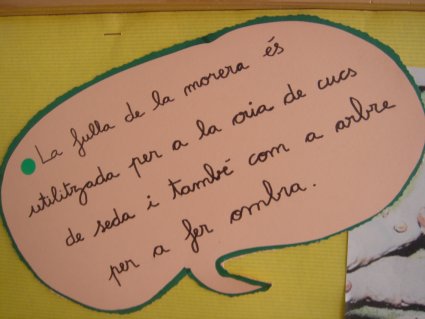 La fulla de la morera és
utilitzada per a la cria de cucs
de seda i també com a arbre
per a fer ombra.